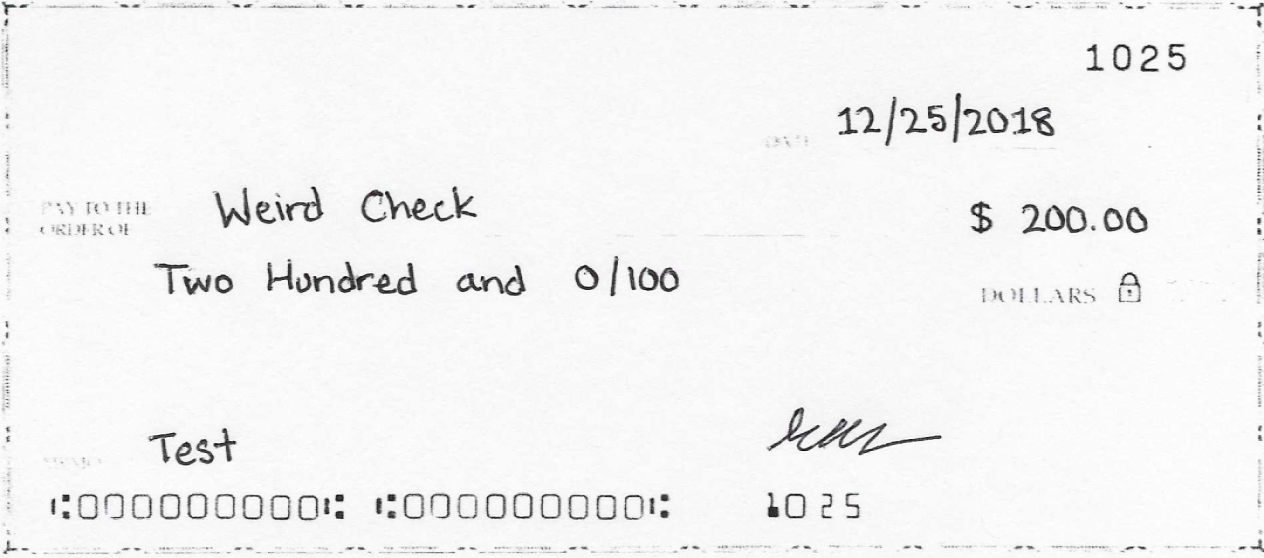 1025
DATE 12/25/2018
PAY TO THE
ORDER OF Weird Check $ 200.00
Two Hundred and 0/100 DOLLARS
Test
MEMO
⑆000000000⑆ ⑆000000000⑆ 1025